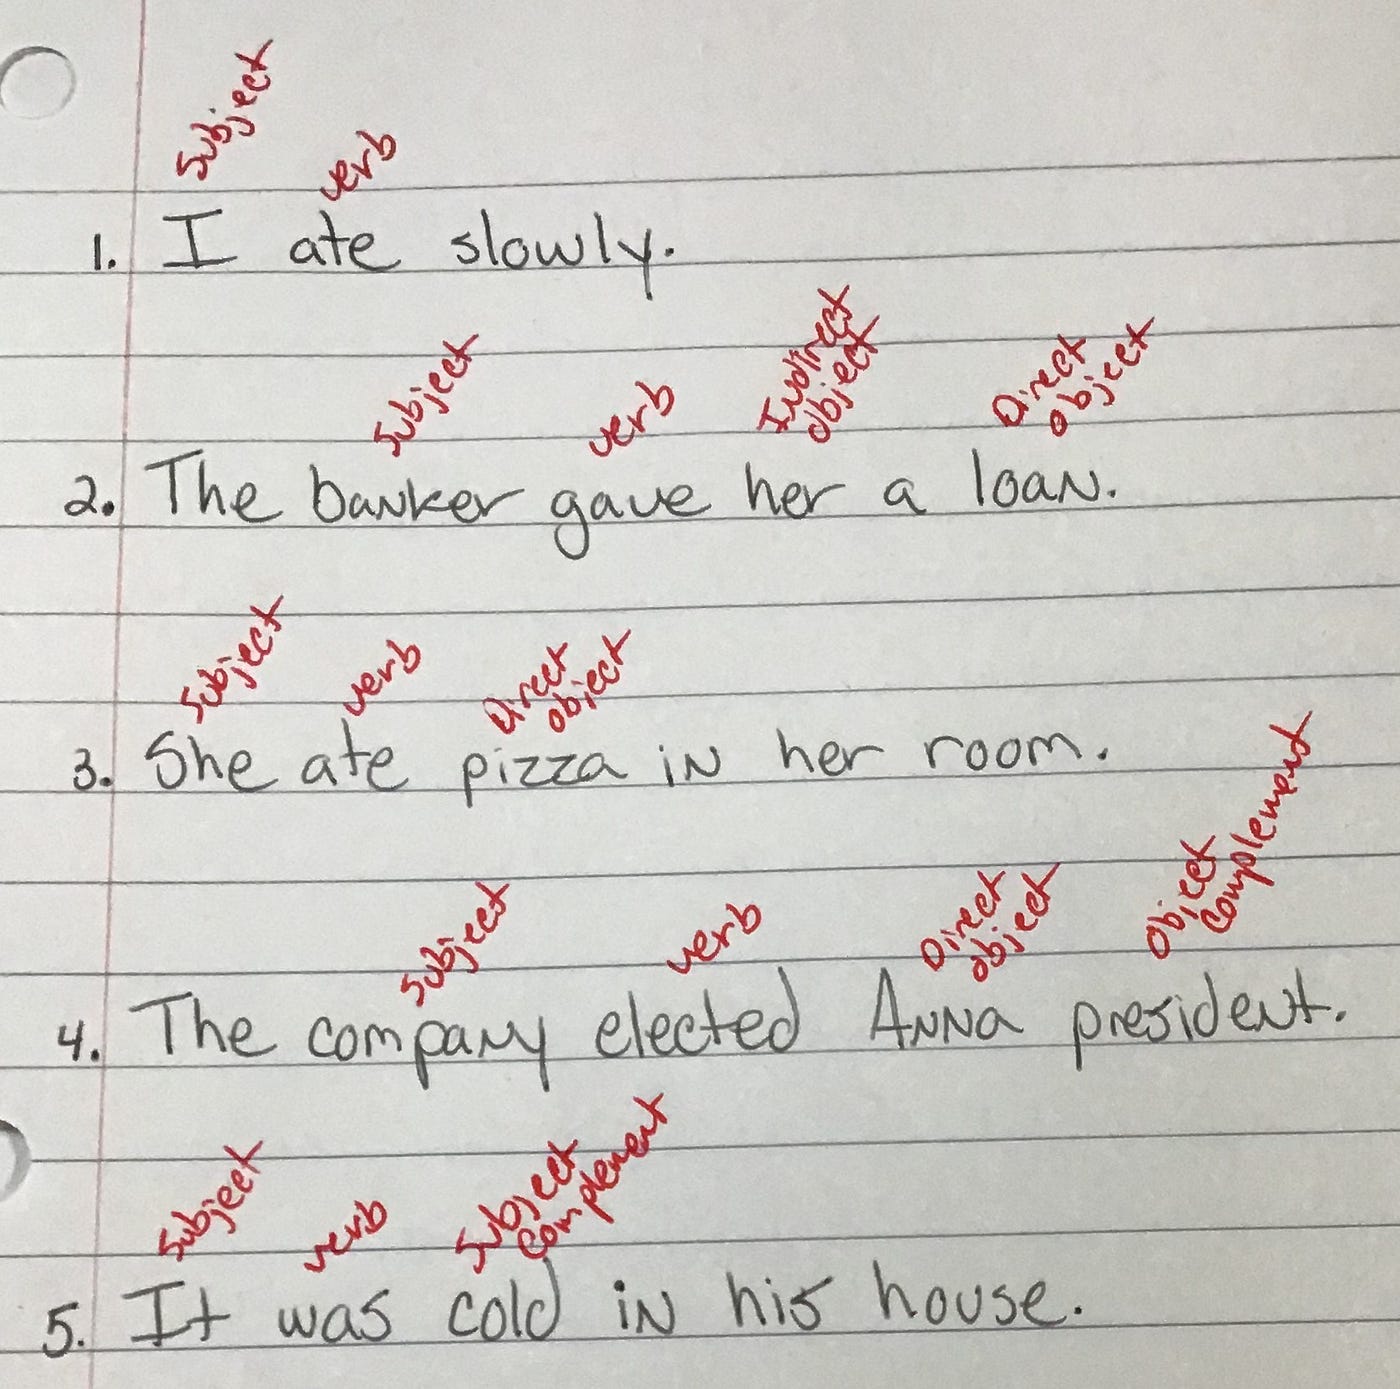 Subject verb
1. I ate slowly.
Subject verb Indirect object Direct object
2. The banker gave her a loan.
Subject verb Direct object
3. She ate pizza in her room.
Subject verb Direct object Object complement
4. The company elected Anna president.
Subject verb Subject complement
5. It was cold in his house.